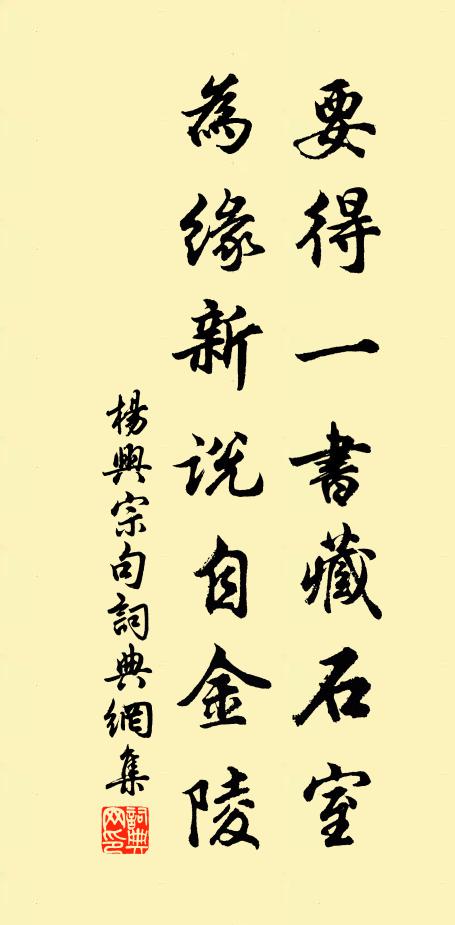 要得一書藏石室
為緣新説自金陵
楊興宗句詞典網集
詞典網印